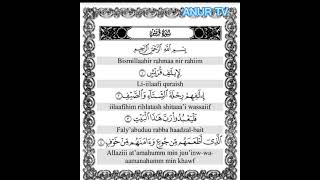 ANUR TV
سورة قريش
بِسْمِ اللَّهِ الرَّحْمَٰنِ الرَّحِيمِ
Bismillaahir rahmaa nir rahiim
لِإِيلَافِ قُرَيْشٍ ۝١
Li-iilaafi quraish
إِيلَافِهِمْ رِحْلَةَ الشِّتَاءِ وَالصَّيْفِ ۝٢
iilaafihim rihlatash shitaaa'i wassaiif
فَلْيَعْبُدُوا رَبَّ هَٰذَا الْبَيْتِ ۝٣
Faly'abuduu rabba haadzal-bait
الَّذِي أَطْعَمَهُم مِّن جُوعٍ وَآمَنَهُم مِّنْ خَوْفٍ ۝٤
Allaziii at'amahumm min juu'inw-wa-
aamanahumm min khawf